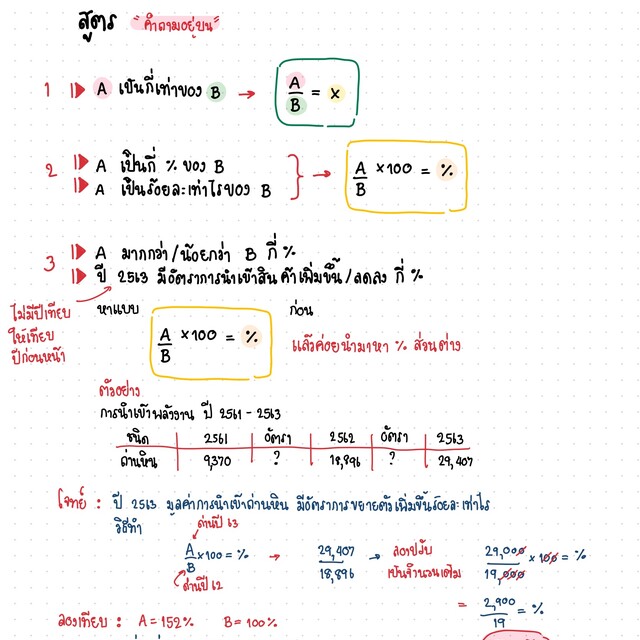 สูตร "คำถามอยู่บน"
1 A เป็นกี่เท่าของ B → A/B = x
2 A เป็นกี่ % ของ B
A เป็นร้อยละเท่าไรของ B → A/B ×100 = %
3 A มากกว่า/น้อยกว่า B กี่ %
ปี 2563 มีอัตราการนำเข้าสินค้าเพิ่มขึ้น/ลดลง กี่ %
ไม่มีปีเทียบ
ให้เทียบ
ปีก่อนหน้า
หาแบบ A/B ×100 = % ก่อน
แล้วค่อยนำมาหา % ส่วนต่าง
ตัวอย่าง
การนำเข้าพลังงาน ปี 2561 - 2563
ชนิด 2561 อัตรา 2562 อัตรา 2563
ถ่านหิน 9,370 ? 18,896 ? 29,407
โจทย์ : ปี 2563 มูลค่าการนำเข้าถ่านหิน มีอัตราการขยายตัวเพิ่มขึ้นร้อยละเท่าไร
วิธีทำ
ถ่านปี 63
A/B ×100 = % → 29,407/18,896 → ลองปรับ เป็นจำนวนเต็ม 29,000/19,000 × 100 = %
ถ่านปี 62
= 2,900/19 = %
ลองเทียบ : A = 152% B = 100%